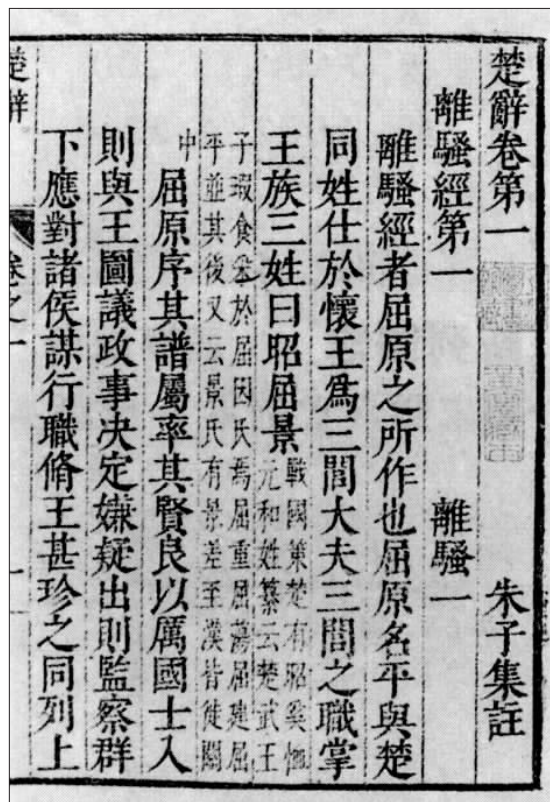 楚辭卷第一 朱子集註
離騷經第一 離騷一
離騷經者屈原之所作也屈原名平與楚
同姓仕於懷王爲三閭大夫三閭之職掌
王族三姓曰昭屈景
戰國策楚有昭奚恤
元和姓纂云楚武王
子瑕食采於屈因氏焉屈重屈蕩屈建屈
平並其後又云景氏有景差至漢皆徙關
中
屈原序其譜屬率其賢良以厲國士入
則與王圖議政事决定嫌疑出則監察群
下應對諸侯謀行職脩王甚珍之同列上
楚辭 卷之一 一